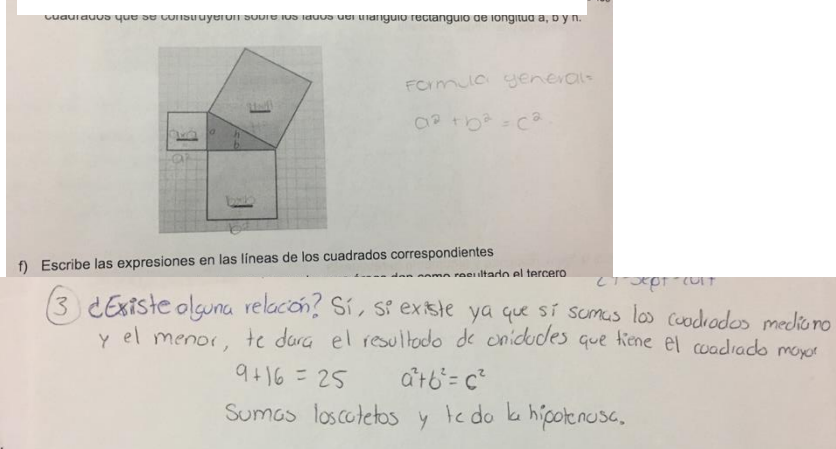 cuadrados que se construyeron sobre los lados del triángulo rectángulo de longitud a, b y h.
Formula general:
a² + b² = c²
axa
a
h
b
a²
bxb
b²
f) Escribe las expresiones en las líneas de los cuadrados correspondientes
como resultado el tercero
27-Sept-2017
3 ¿Existe alguna relación? Sí, si existe ya que sí sumas los cuadrados mediano
y el menor, te dara el resultado de unidades que tiene el cuadrado mayor
9+16 = 25 a²+b²=c²
Sumas los catetos y te da la hipotenusa.